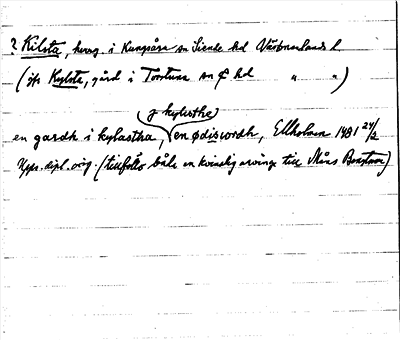 ? Kilsta, herrg. i Kungsåra sn Siende hd Västmanlands l.
(jfr Kylsta, gård i Tortuna sn & hd " ")
j kylusthe
en gardh i kylastha, en ødiswordh, Ekholmen 1481 24/2
Upps. dipl. orig. (tillföllo både en kvinnlig arvinge till Måns Bengtsson)